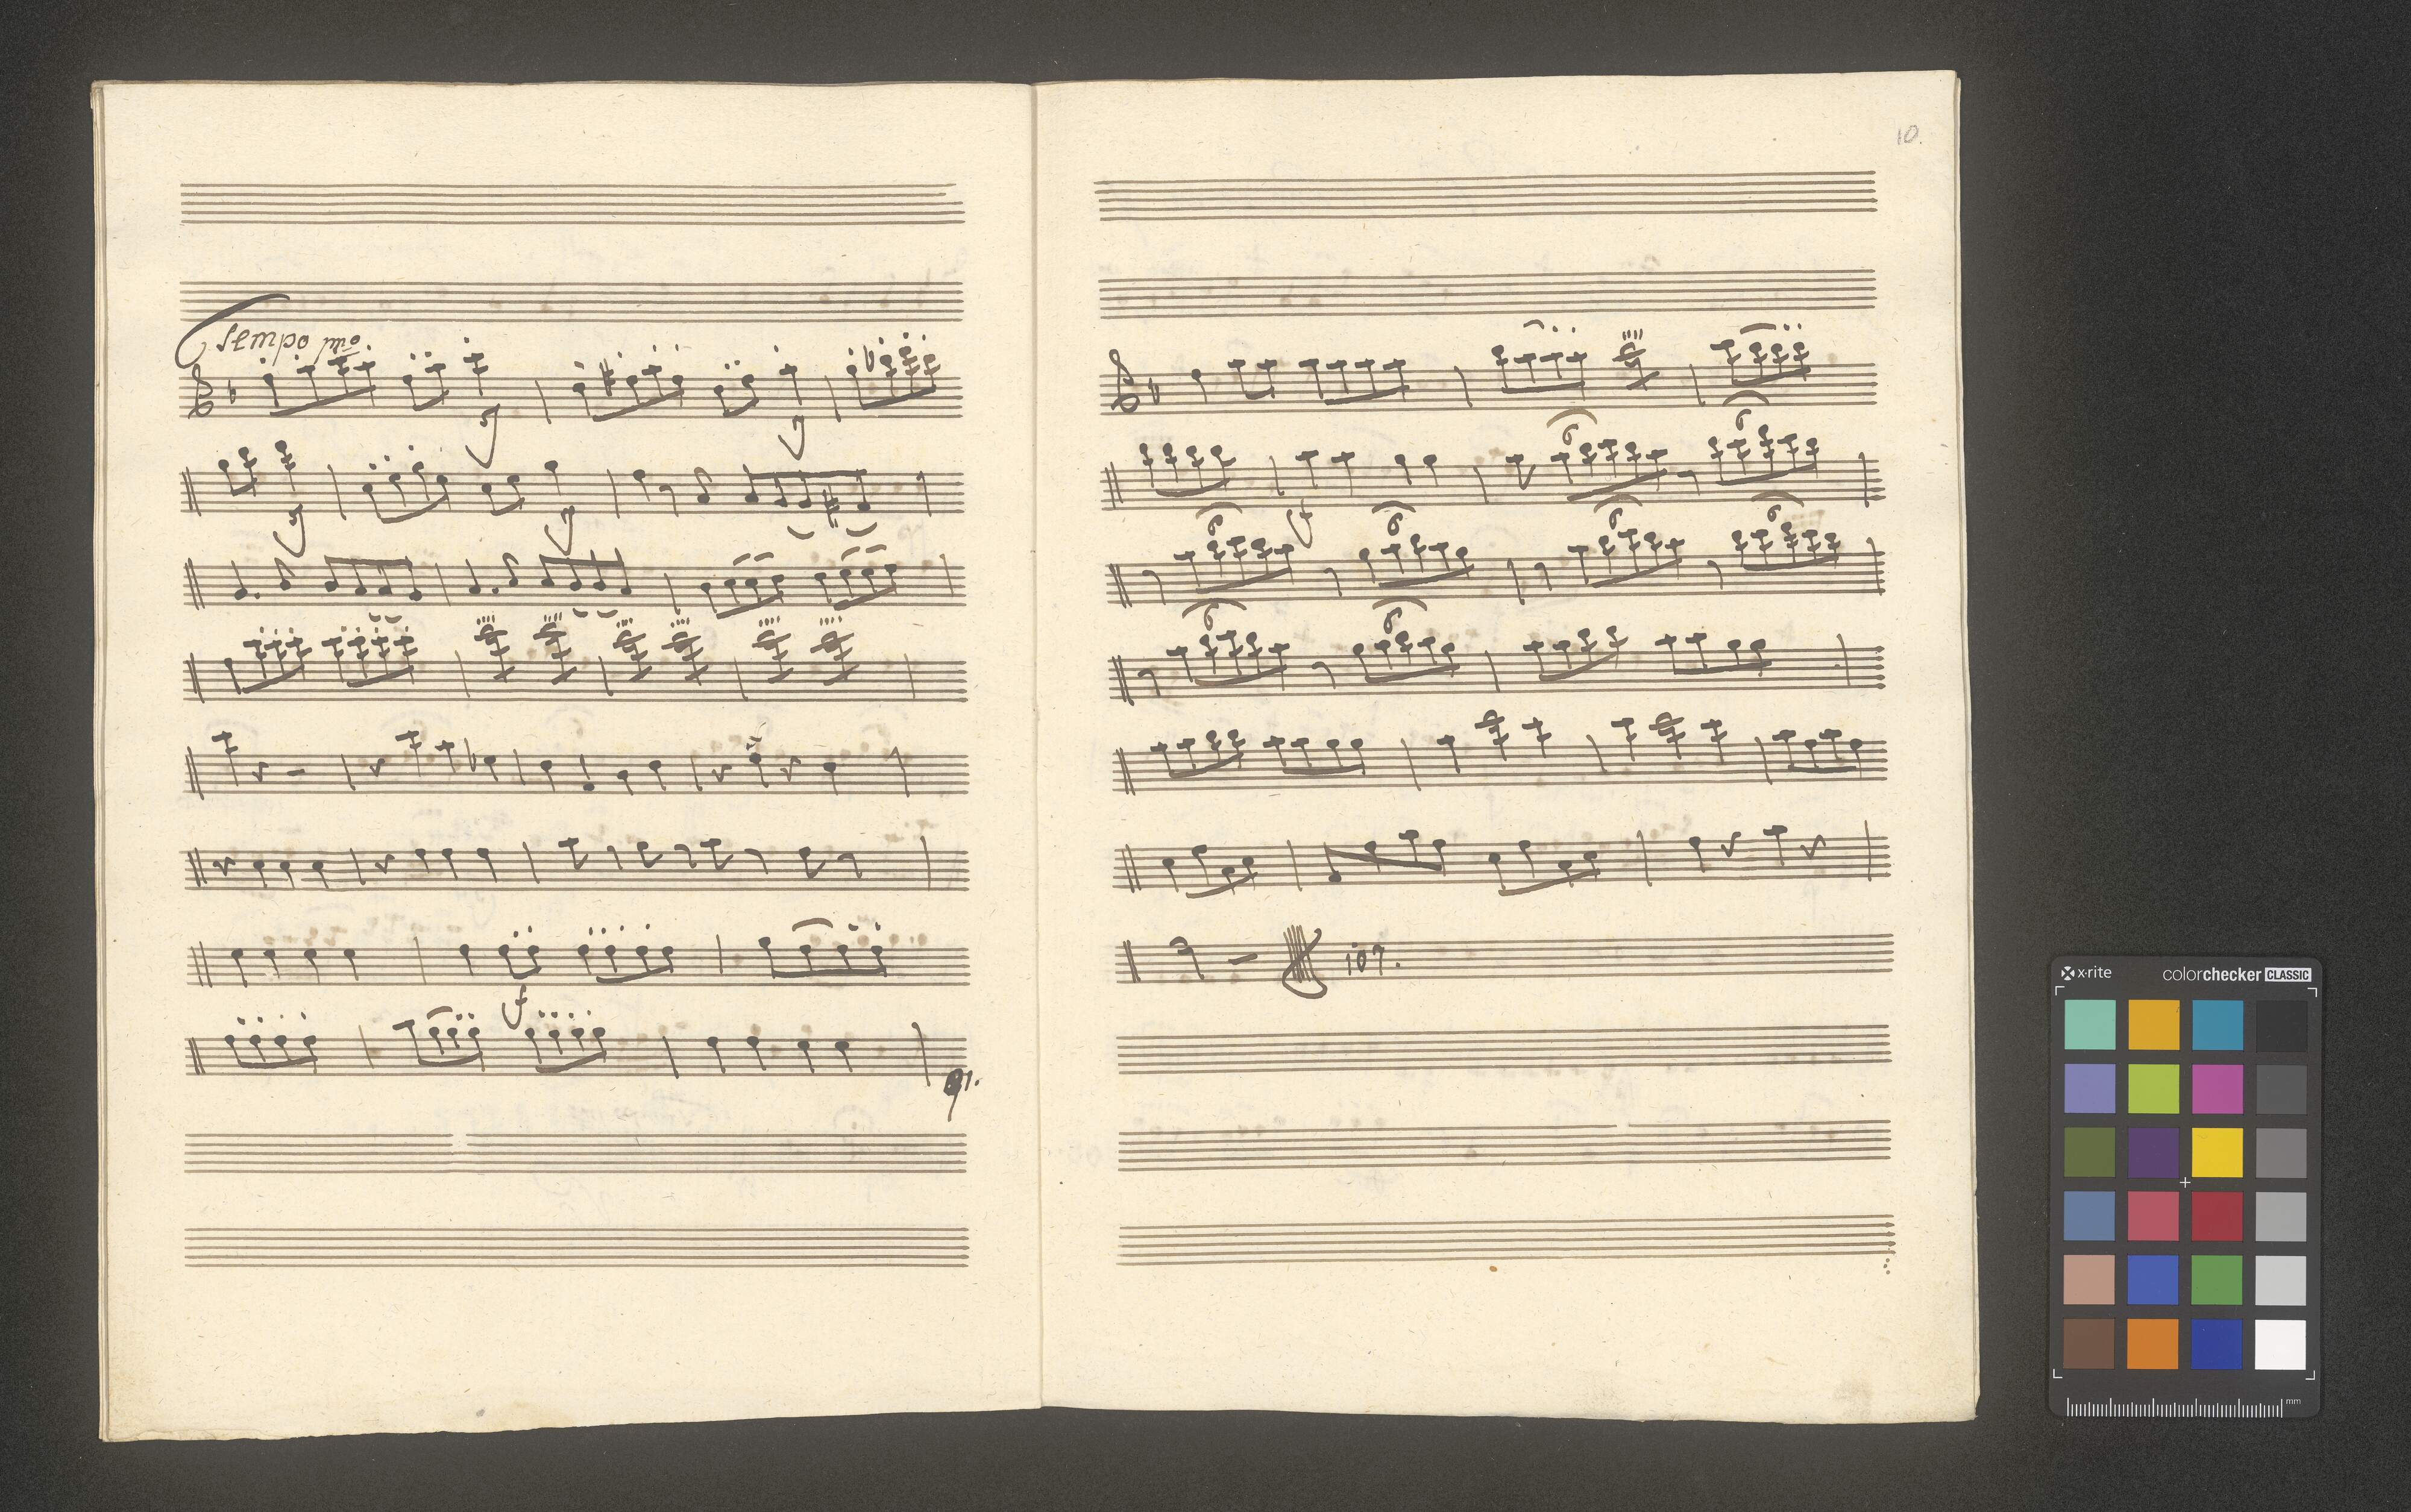 Tempo pmo
10.
107.
x·rite colorchecker CLASSIC
mm